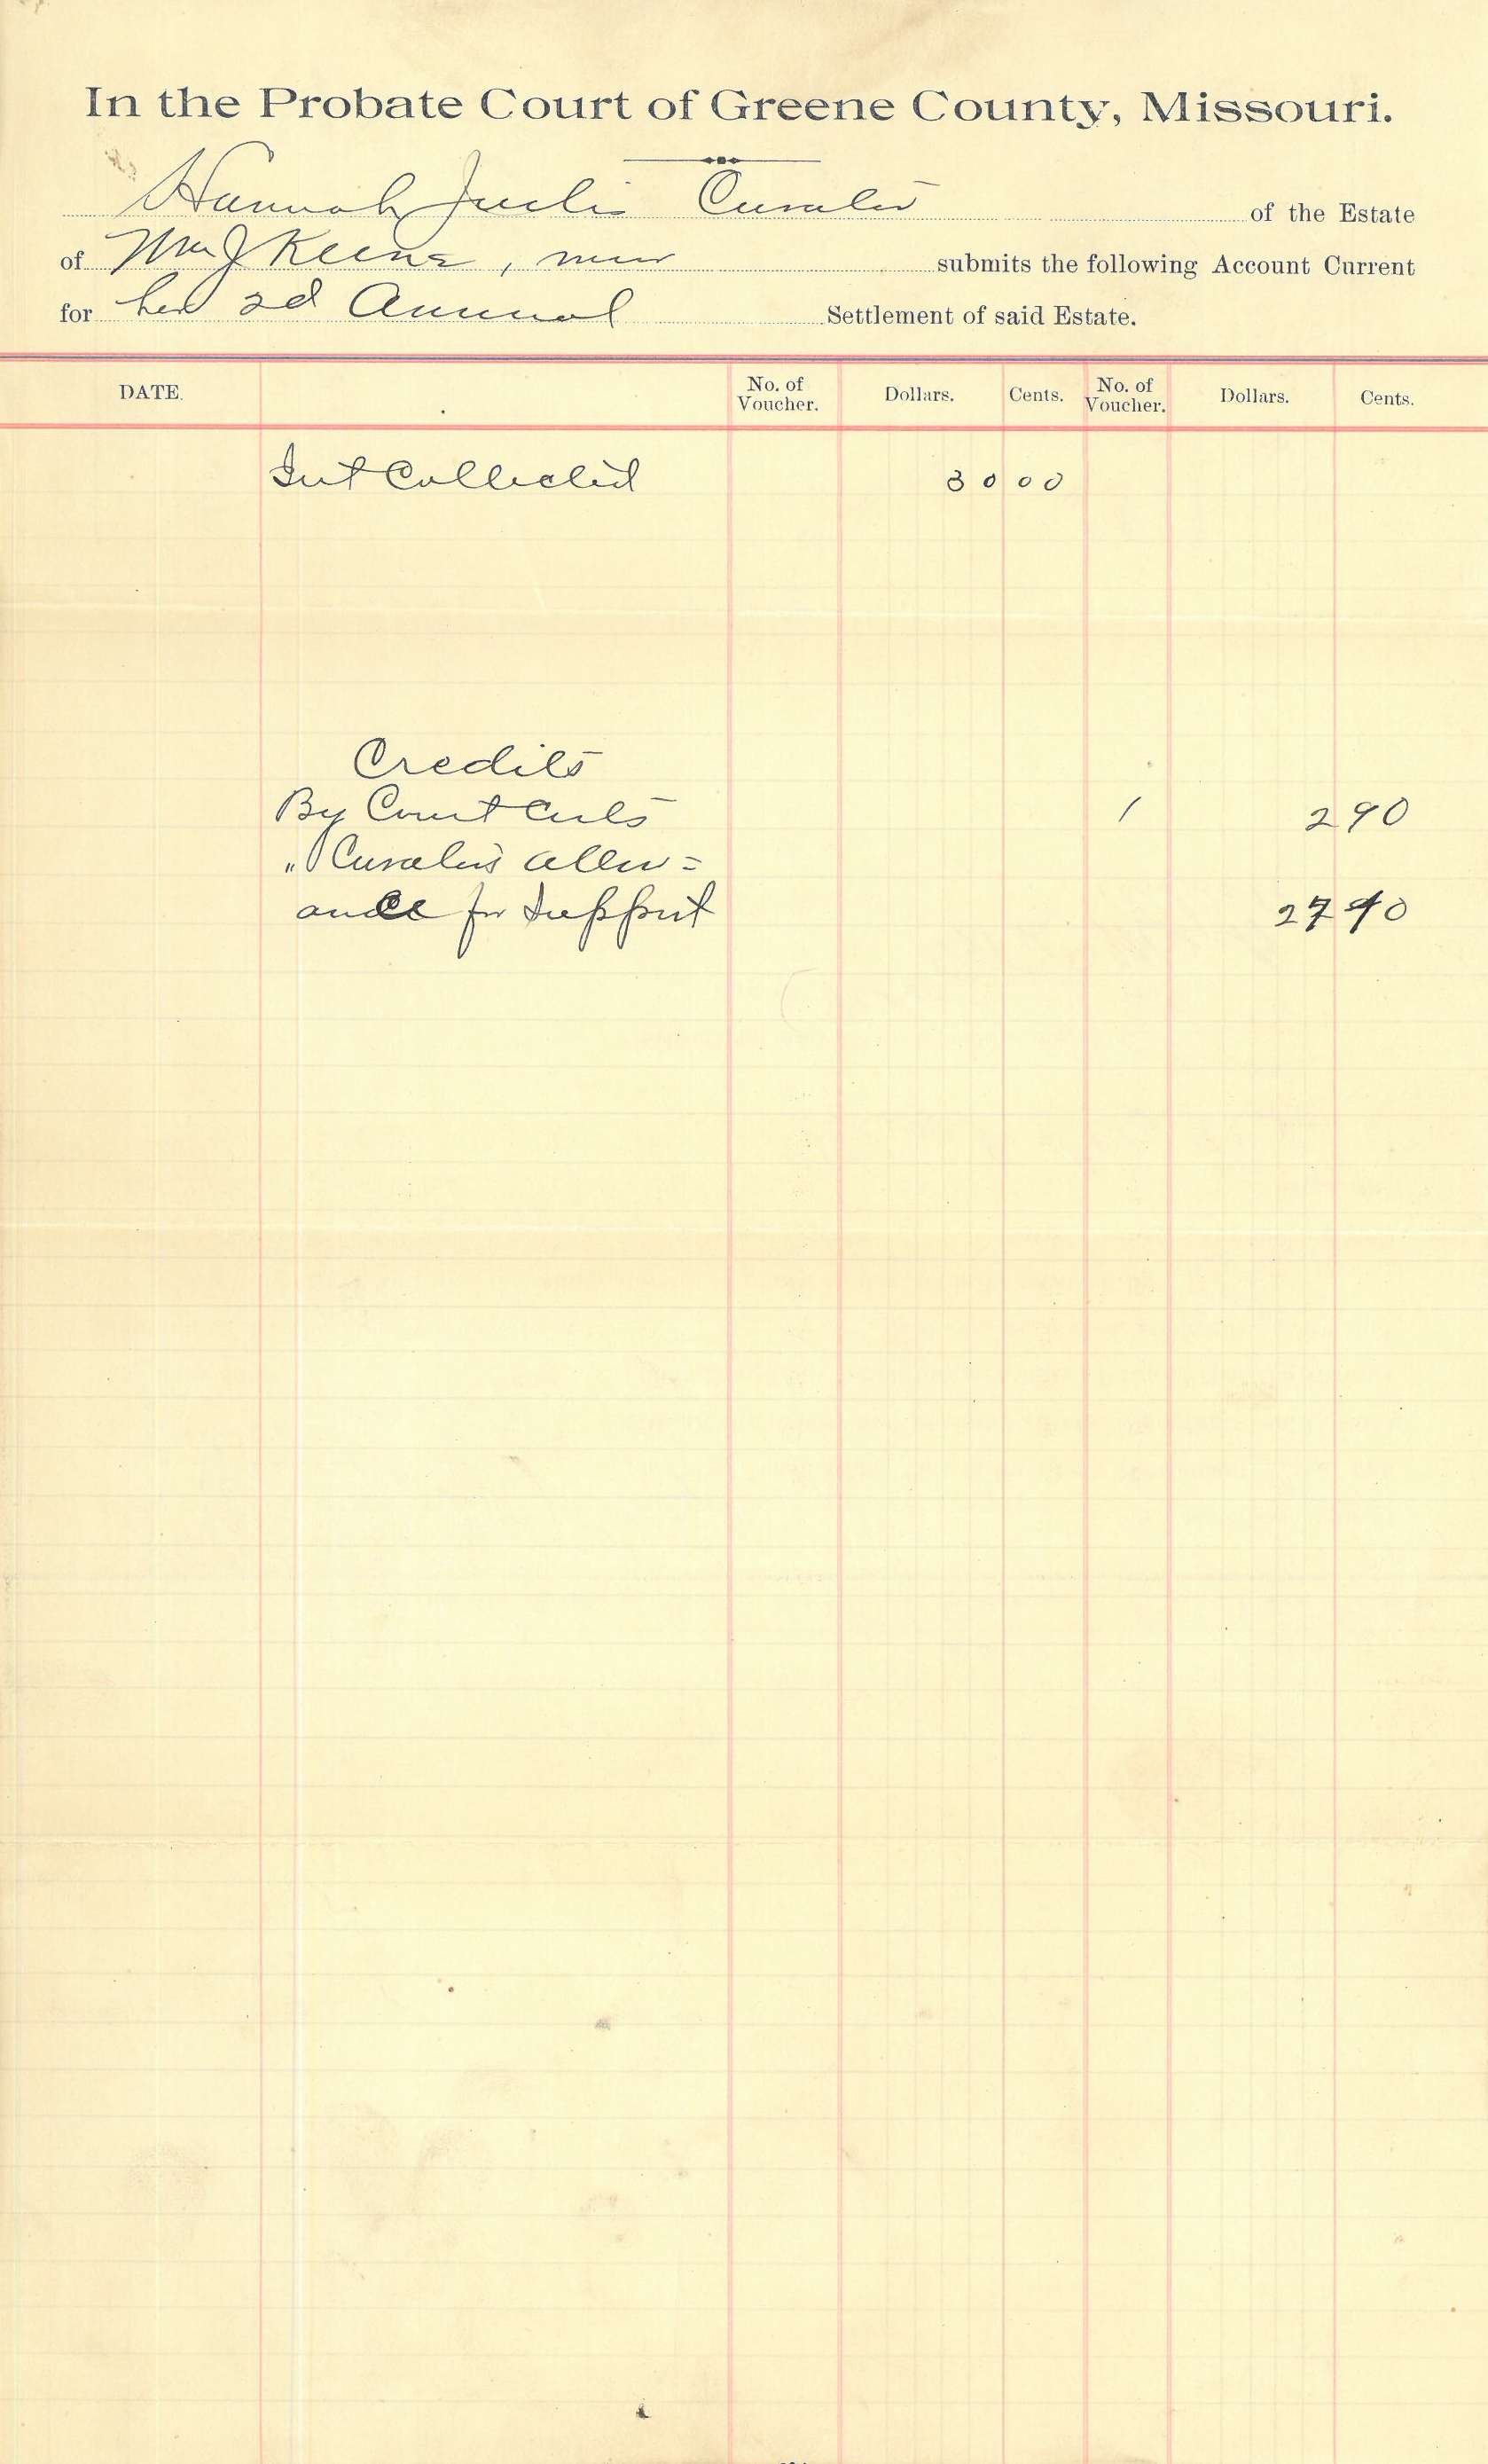 In the Probate Court of Greene County, Missouri.
Hannah Curator of the Estate
of Wm J Keene, minor submits the following Account Current
for her 2d Annual Settlement of said Estate.
DATE. No. of Voucher. Dollars. Cents. No. of Voucher. Dollars. Cents.
Int Collected 30 00
Credits
By Court Costs 1 2 90
" Curator's allow=
ance for support 27 90